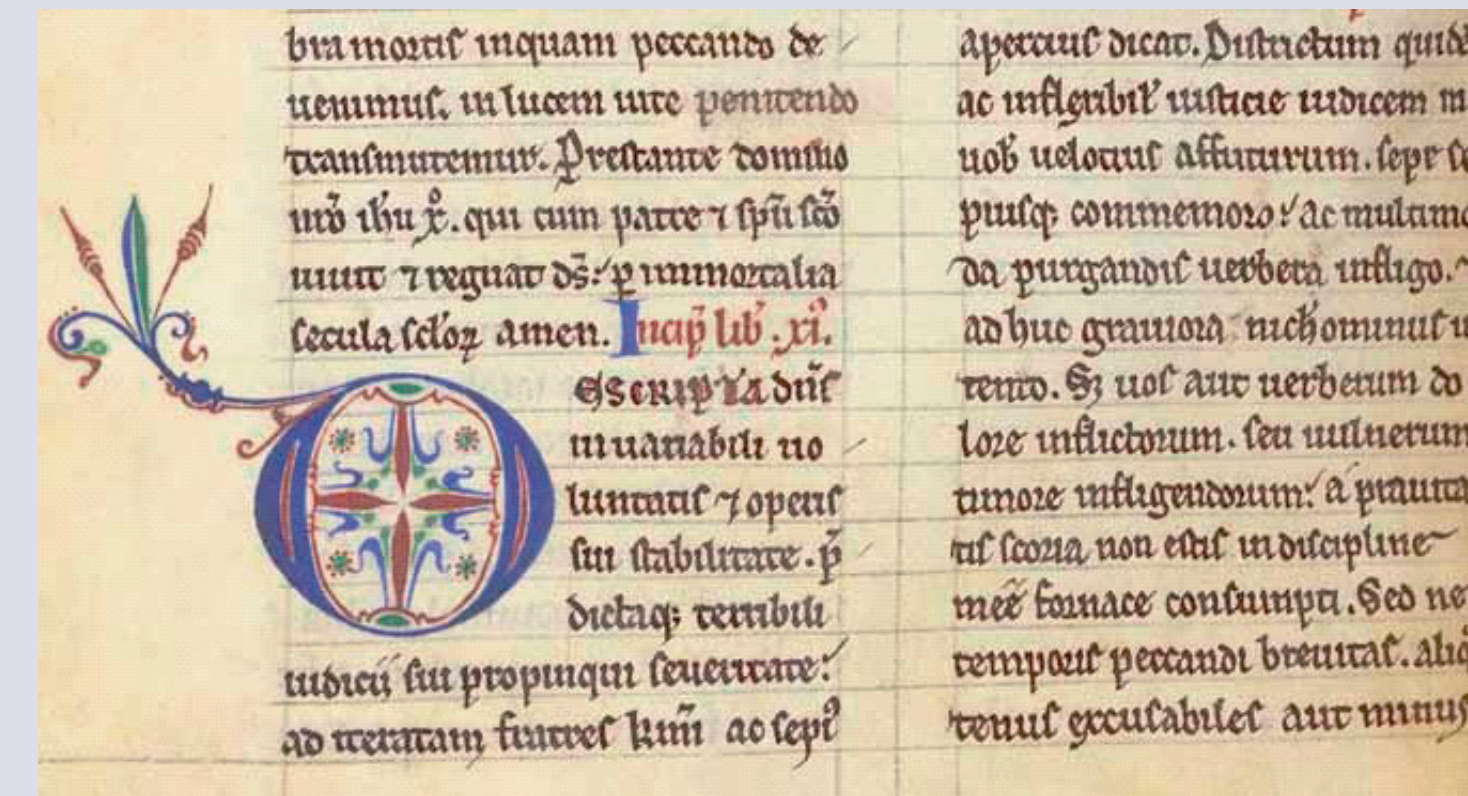 bra mortiſ inquam peccando de
uenimuſ. in lucem uite penitendo
tranſmutemur. Preſtante domino
nr̄o ih̄u xp̊. qui cum patre ⁊ ſp̄u ſc̄o
uiuit ⁊ regnat dſ̄. ꝑ immortalia
ſecula ſcl̓oꝝ amen. Incip̄ lib̄ .xi᷒.
DESCRIPTA diuīſ
inuariabili uo
luntatiſ ⁊ operiſ
ſui ſtabilitate. p̄
dictaq; terribili
iudicij ſui propinqui ſeueritate:
ad iteratam fratreſ km̄i ac ſepiꝰ
apertiuſ dicat. Diſtrictum quidē
ac inflexibil̓ iuſticie iudicem m
uob̓ uelociuſ affuturum. ſepe ſe
piuſq; commemoro: ac multimo
da purgandiſ uerbera infligo.
ad huc grauiora nichominuſ in
tento. Sꝫ uoſ aut uerberum do
lore inflictorum. ſeu uulnerum
timore infligendorum: a prauita
tiſ ſcoria non eſtiſ in diſcipline
meē fornace conſumpti. Sed ne
temporiſ peccandi breuitaſ. aliq
tenuſ excuſabileſ aut minuſ